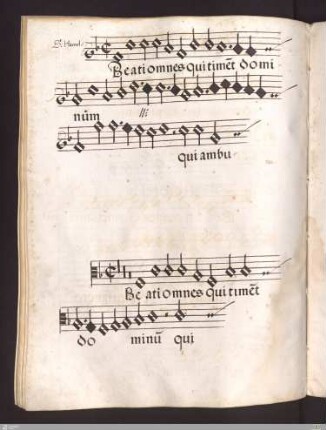 Beati omnes qui timēt domi
nūm iii
qui ambu
Be ati omnes qui timēt
do minū qui